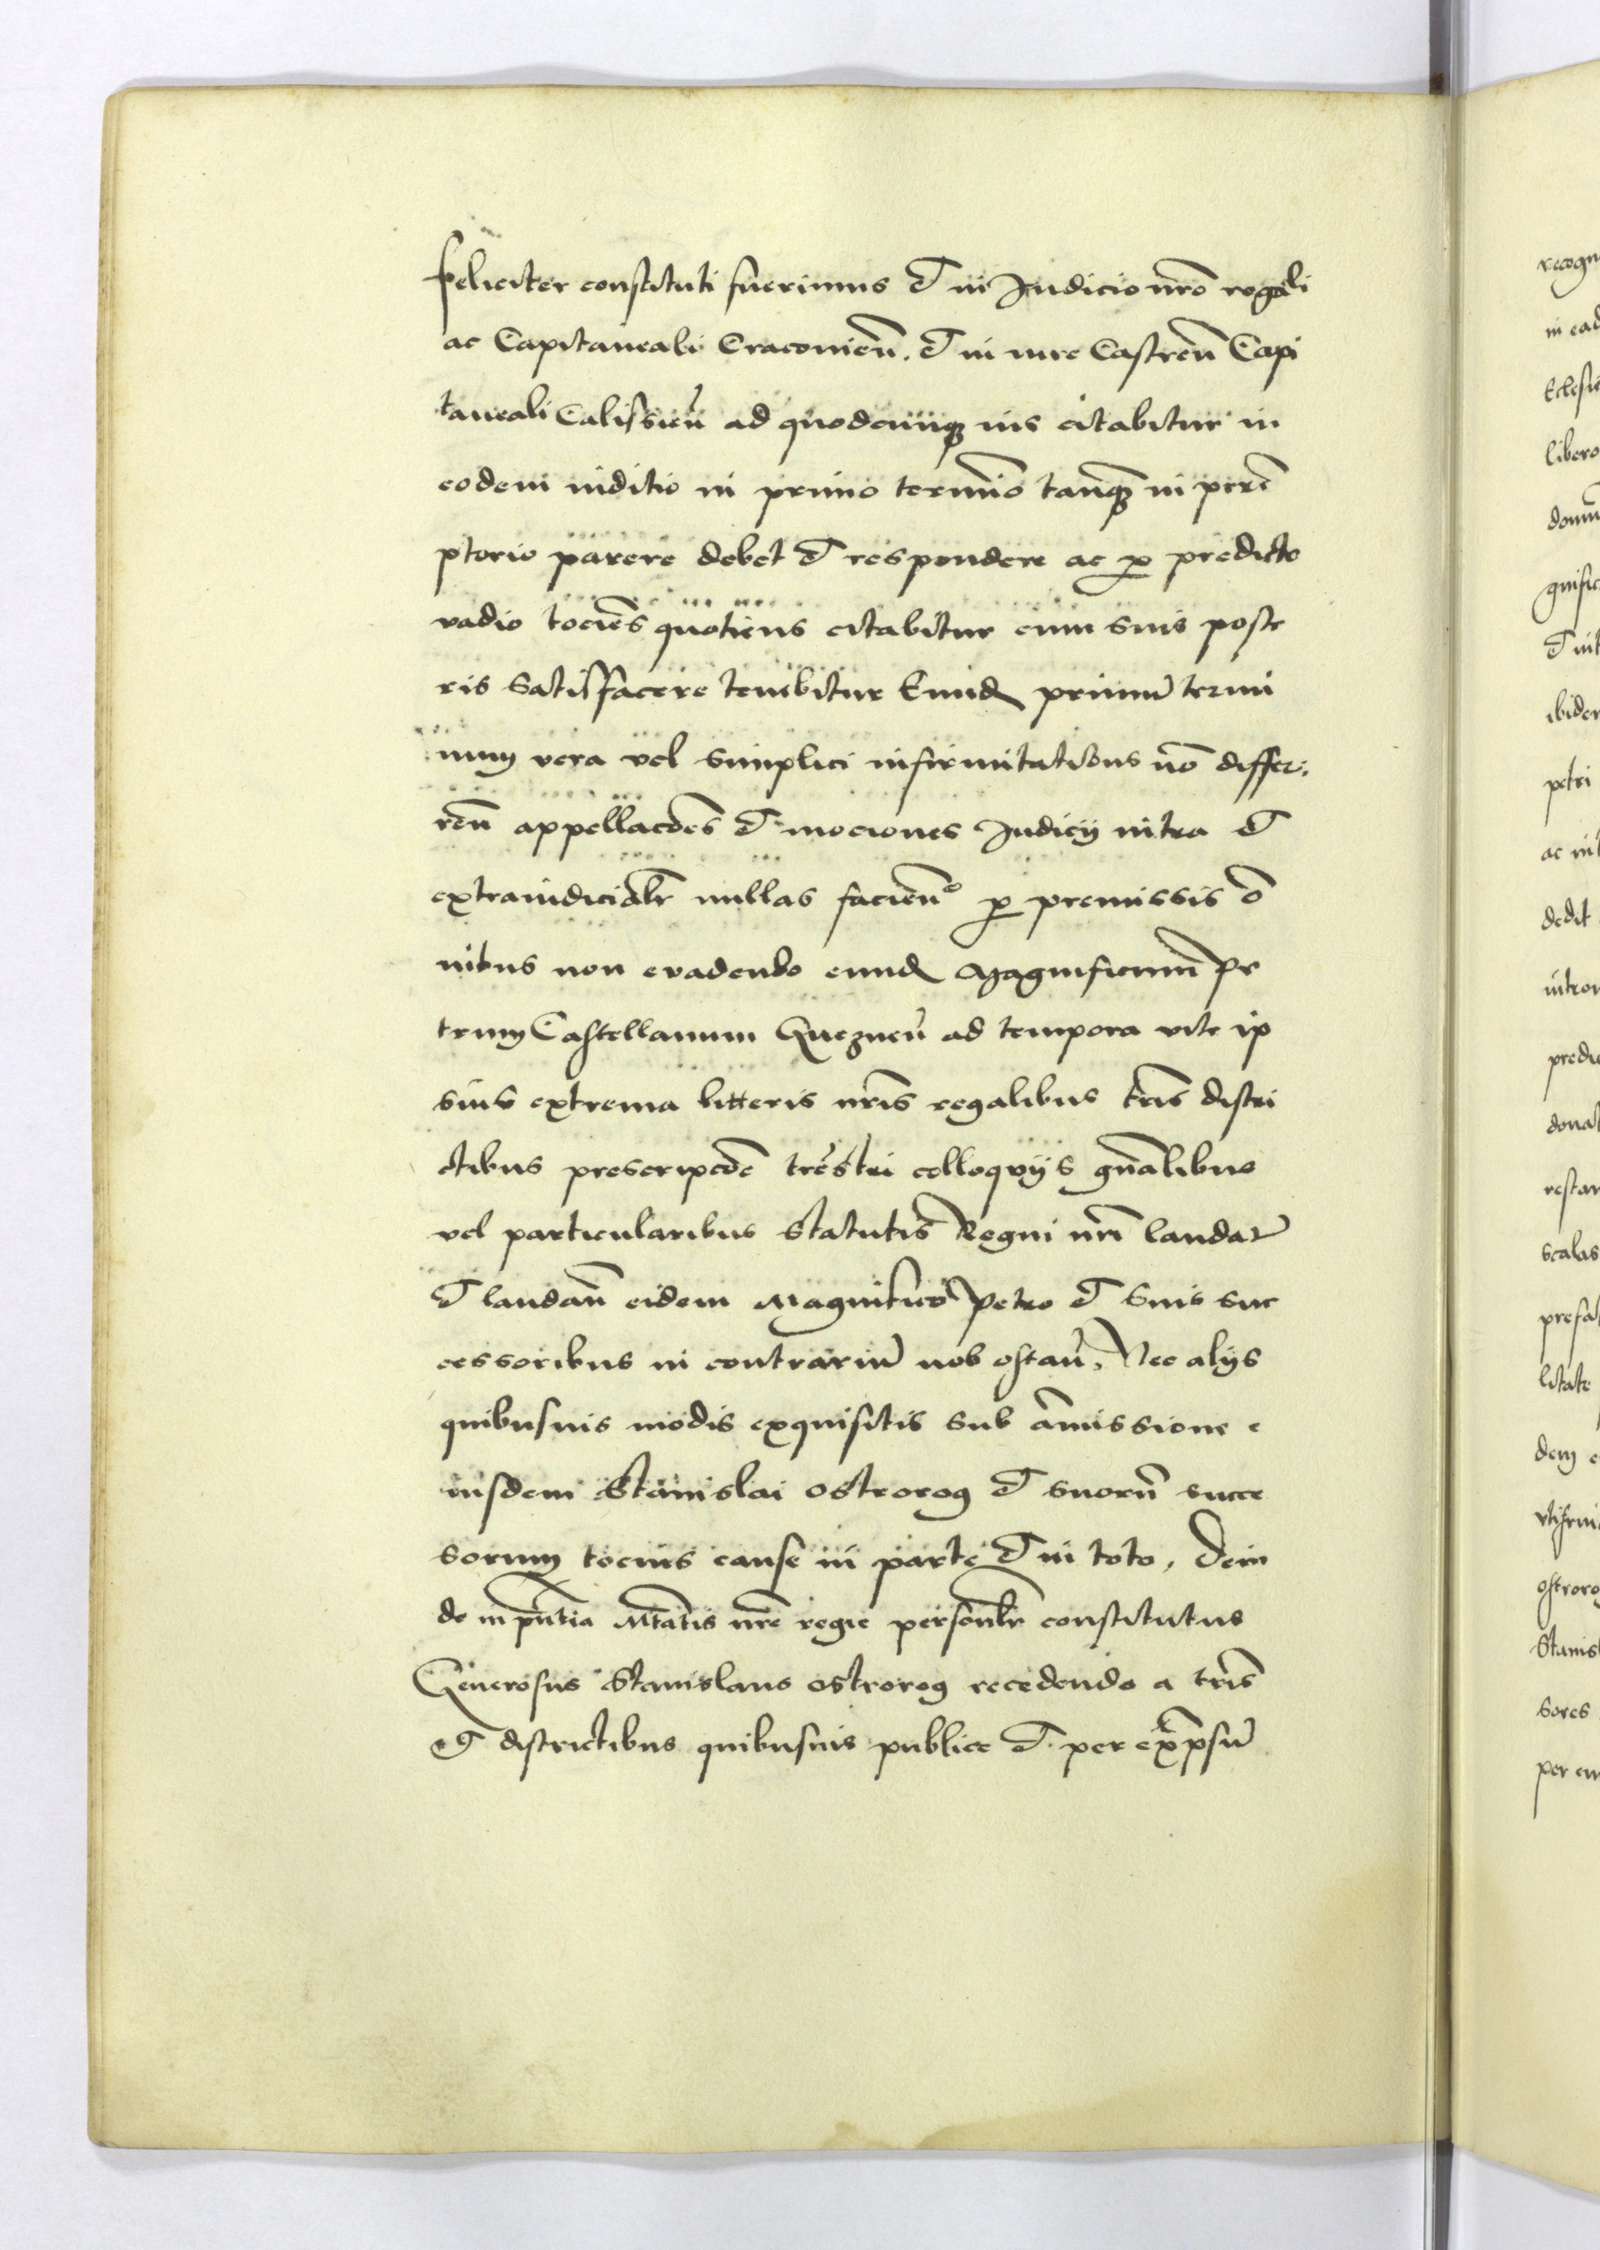 feliciter constituti fuerimus et in Judicio nro regali
ac Capitaneali Cracovien. et in iure Castren Capi
taneali Calissien ad quodcunqz ius citabitur in
eodem iuditio in primo termino tanqz in perem
ptorio parere debet et respondere ac p predicto
vadio tociens quotiens citabitur cum suis poste
ris satisfacere tenebitur Eundz primum termi
num vera vel simplici infirmitatibus non differ.
ren appellacoes et mociones Judicij intra et
extraiudicialr nullas facien p premissis o
nibus non evadendo eundz Magnificum Pe
trum Castellanum Gneznen ad tempora vite ip
sius extrema litteris nris regalibus tris distri
ctibus prescripcoe trestri colloquijs gnalibus
vel particularibus statutis Regni nri laudat
et laudan eidem Magnifico Petro et suis suc
cessoribus in contrarium non obstan. Nec alijs
quibusuis modis exquisitis sub amissione e
iusdem Stanislai ostrorog et suorum succe
sorum tocius cause in parte et in toto. Dein
de in pntia Mtatis nre regie personlr constitutus
Generosus Stanislaus ostrorog recedendo a tris
et districtibus quibusuis publice et per expsum
recogn
in ead
Eclesie
libero
domin
gnific
et int
ibidem
petri
ac int
dedit
intro
predi
donat
restar
scalas
prefat
litate
dem e
ostrorog
Stanisl
sores
per eu